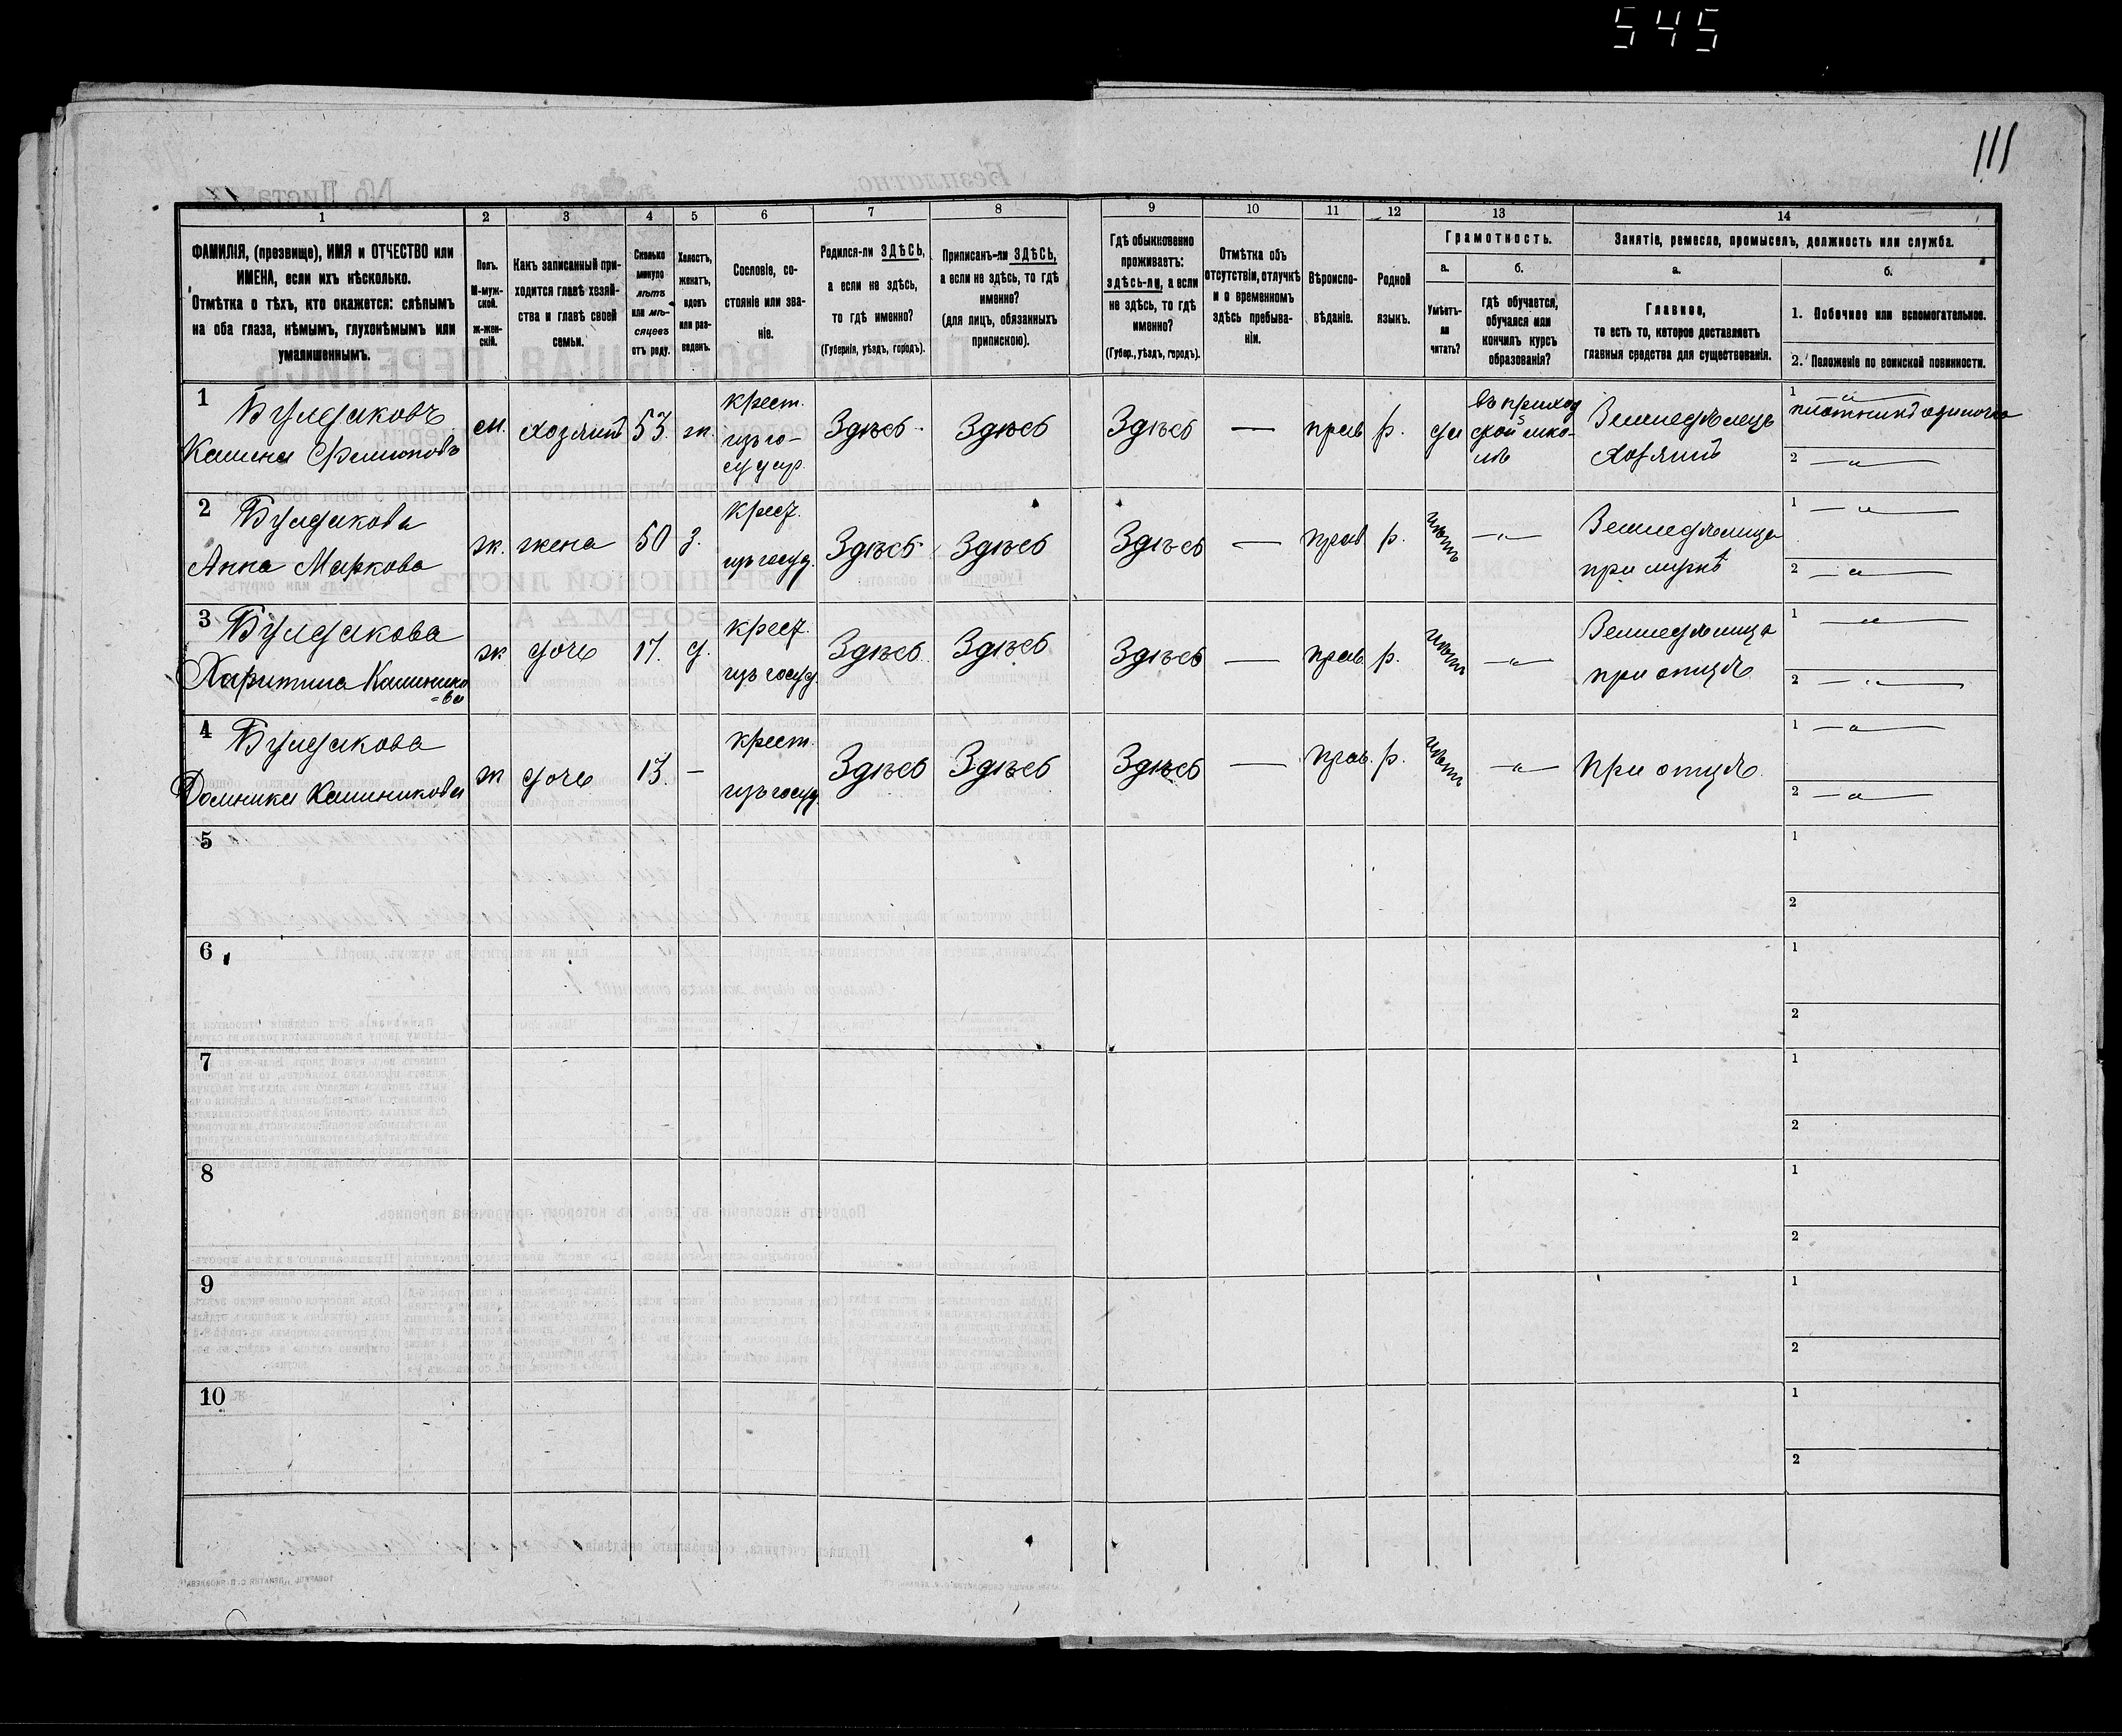 545
111
1 2 3 4 5 6 7 8 9 10 11 12 13 14
ФАМИЛІЯ, (прозвище), ИМЯ и ОТЧЕСТВО или
ИМЕНА, если ихъ нѣсколько.
Отмѣтка о тѣхъ, кто окажется: слѣпымъ
на оба глаза, нѣмымъ, глухонѣмымъ или
умалишеннымъ.
Полъ.
М-муж-
ской.
ж-жен-
скій.
Какъ записанный при-
ходится главѣ хозяй-
ства и главѣ своей
семьи.
Сколько
минуло
лѣтъ
или мѣ-
сяцевъ
отъ роду.
Холостъ,
женатъ,
вдовъ
или раз-
веденъ.
Сословіе, со-
стояніе или зва-
ніе.
Родился-ли ЗДѢСЬ,
а если не здѣсь,
то гдѣ именно?
(Губернія, уѣздъ, городъ).
Приписанъ-ли ЗДѢСЬ,
а если не здѣсь, то гдѣ
именно?
(для лицъ, обязанныхъ
припискою).
Гдѣ обыкновенно
проживаетъ:
здѣсь-ли, а если
не здѣсь, то гдѣ
именно?
(Губер., уѣздъ, городъ).
Отмѣтка объ
отсутствіи, отлучкѣ
и о временномъ
здѣсь пребыва-
ніи.
Вѣроиспо-
вѣданіе.
Родной
языкъ.
Грамотность.
а.
Умѣетъ-
ли
читать?
б.
гдѣ обучается,
обучался или
кончилъ курсъ
образованія?
Занятіе, ремесло, промыселъ, должность или служба.
а.
Главное,
то есть то, которое доставляетъ
главныя средства для существованія.
б.
1. Побочное или вспомогательное.
2. Положеніе по воинской повинности.
1
Булдаковъ
Филиповъ
м.
хозяинъ
53
ж.
крест.
изъ го-
судар.
Здѣсь
Здѣсь
Здѣсь
—
прав
р.
да
въ приход
ской шко-
лѣ
Земледѣлецъ
хозяинъ
1 —"—
плотникъ одиночка
2 —"—
2
Булдакова
Анна Маркова
ж.
жена
50
з.
крест.
изъ госуд.
Здѣсь
Здѣсь
Здѣсь
—
прав
р.
нѣтъ
—"—
Земледѣлица
при мужѣ
1 —"—
2 —"—
3
Булдакова
Харитина
ж
дочь
17.
д.
крест.
изъ госуд.
Здѣсь
Здѣсь
Здѣсь
—
прав.
р.
нѣтъ
—"—
Земледѣлица
при отцѣ
1 —"—
2 —"—
4
Булдакова
Домника
ж
дочь
13.
—
крест.
изъ госуд.
Здѣсь
Здѣсь
Здѣсь
—
прав.
р.
нѣтъ
—"—
При отцѣ
1 —"—
2 —"—
5
1
2
6
1
2
7
1
2
8
1
2
9
1
2
10
1
2